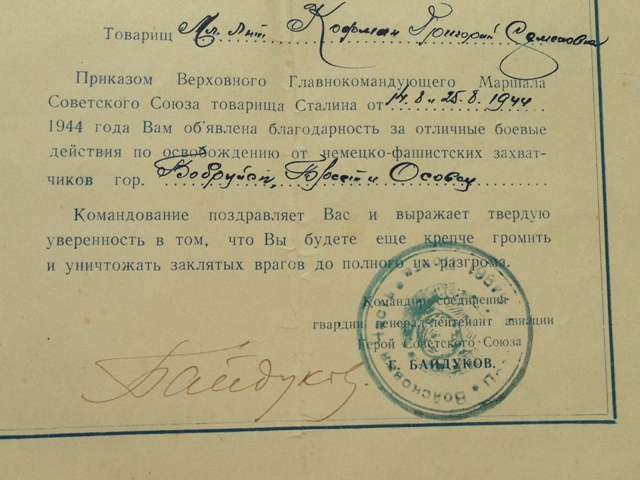 Товарищ Мл. Лнт Кофман Григорий Семенович
Приказом Верховного Главнокомандующего Маршала
Советского Союза товарища Сталина от 14.8 и 25.8.1944
1944 года Вам об'явлена благодарность за отличные боевые
действия по освобождению от немецко-фашистских захват-
чиков гор. Бобруйск, Брест и Осовец
Командование поздравляет Вас и выражает твердую
уверенность в том, что Вы будете еще крепче громить
и уничтожать заклятых врагов до полного их разгрома.
Командир соединения
гвардии генерал-лейтенант авиации
Герой Советского Союза
Г. БАЙДУКОВ.
Байдуков.
Войсковая часть